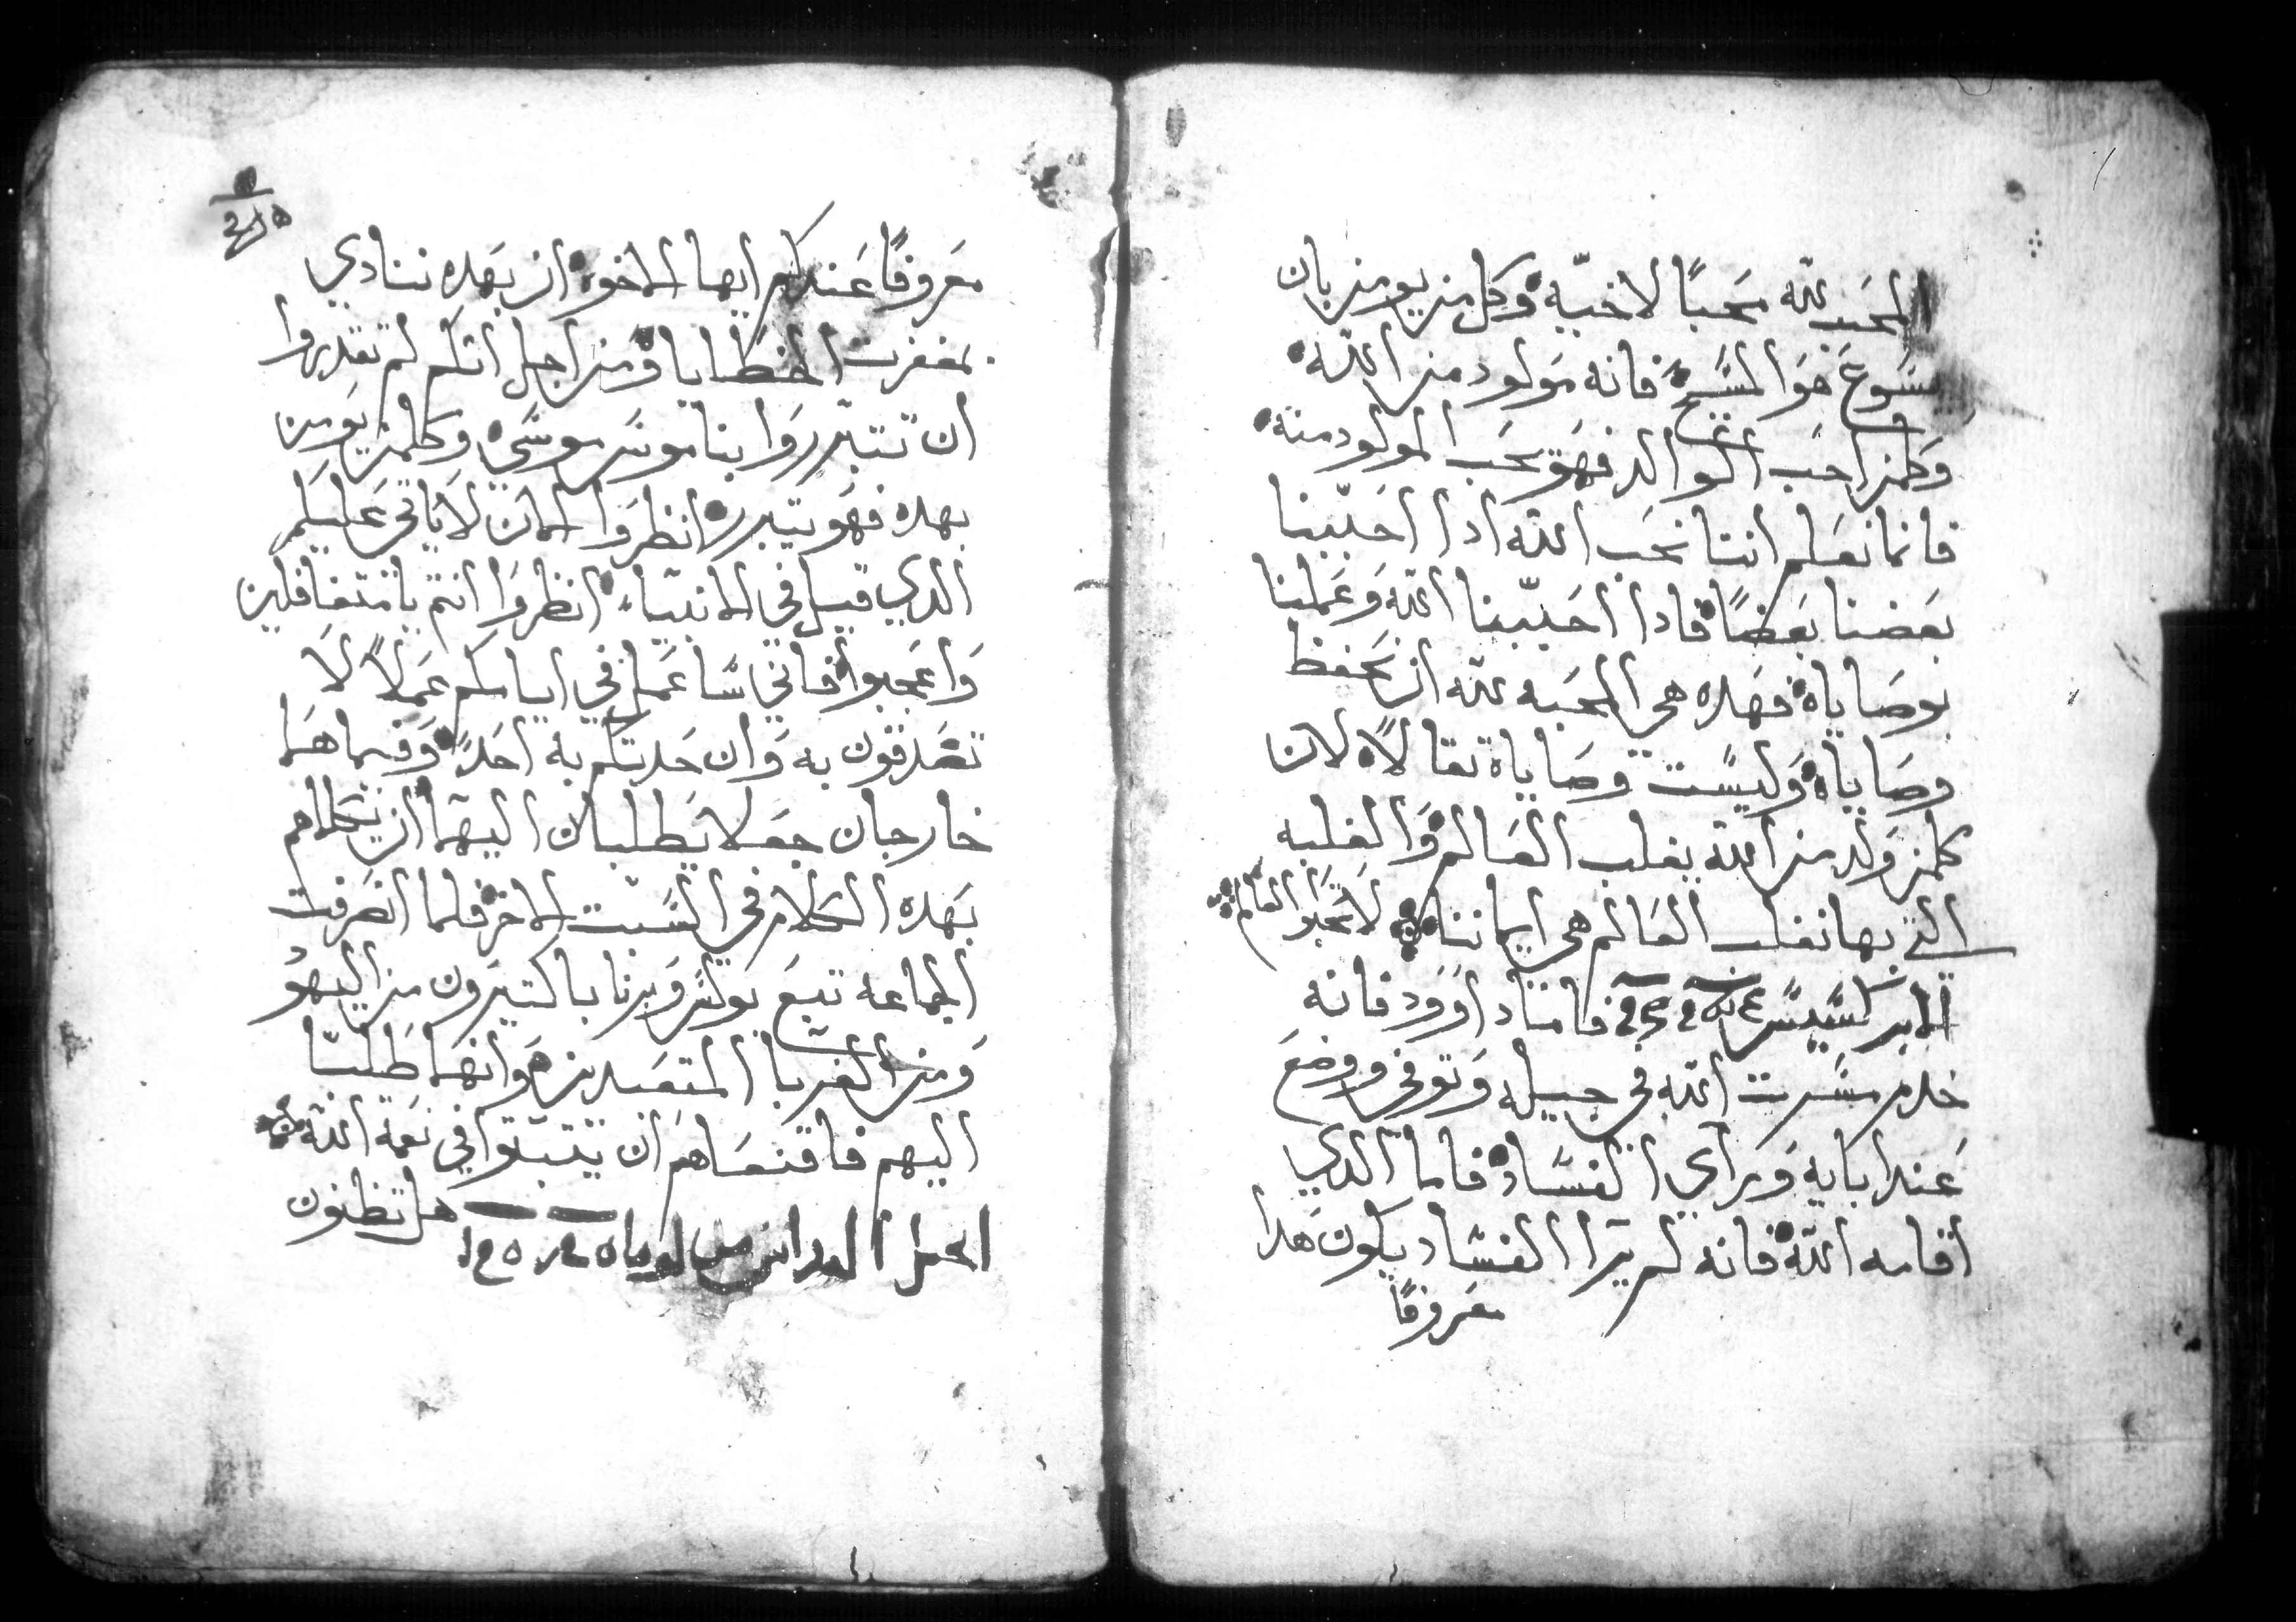 المحب لله محبًا لاخيّه وكل من يومن بان
يسَوع هَوَ المسَيح فانه مَولود من الله
وَكلمن احَب الوالد فهَو يحَب المولود منه
فانما نعَلم اننا نحَب الله ادا احَببنا
بعَضنا بعَضًا فادا احَببنا الله وَعَملنا
بوصَاياه فهَده هي المحَبه لله ان نحَفظ
وصَاياه وَليسَت وصَاياه تقالاً لان
كلمن وَلد من الله يغلب العَالم وَالغلبه
التي بها نغلب العَالم هي ايماننا لا تحَبوا العَالم
الابركسَيسَ فاما داوَود فانه
خدم مسَرت الله في جيله وَتوفي ووضعَ
عَند ابايه وَراي الفسَاد فاما الدي
اقامه الله فانه لم يَرا الفسَاد يكون هَدا
معَروفًا
معَروفًا عَندكم ايها الاخوه ان بهَده ننادي
بمغفرت الخطايا ومن اجل انكم لم تقدروا
ان تتبرروَا بناموسَ موسَي وَكلمن يَومن
بهده فهَو يتبرر انظروَا الان لا ياتي عَليكم
الدي قيل في الانبياء انظروَا انتم يا متغافلين
وَاعَجبوا فاني سَاعَمل في ايامكم عَملاً لَا
تصَدقون به وَان حَدتكم به احَدًا وَفيما هَما
خارجان جعَلا يَطلبان اليهمَا ان يتكلما م
بهَده الكَلام في السَبت الاخر فلما انصَرفت
الجماعه تبعَ بَولسَ وَبرنابا كتيرَون من اليهوُ
وَمن الغربا المتعَبدين وَانهمَا طَلبَا
اليهم فاقنعَاهم ان يتبتوَا في نعَمة الله
هل تظنون